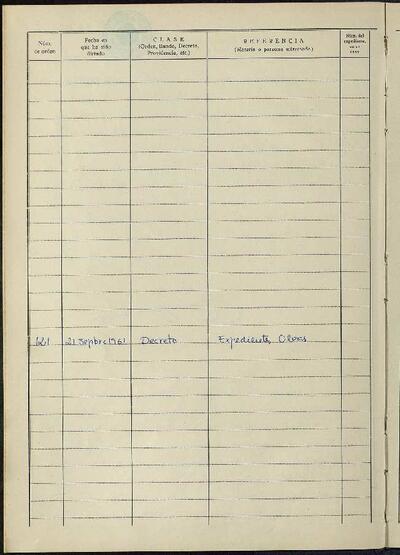 Núm.
de orden
Fecha en
que ha sido
dictado
CLASE
(Orden, Bando, Decreto,
Providencia, etc.)
REFERENCIA
(Materia o persona interesada)
Núm. del
expediente,
621 21 Sepbre 1961 Decreto Expediente, Obras